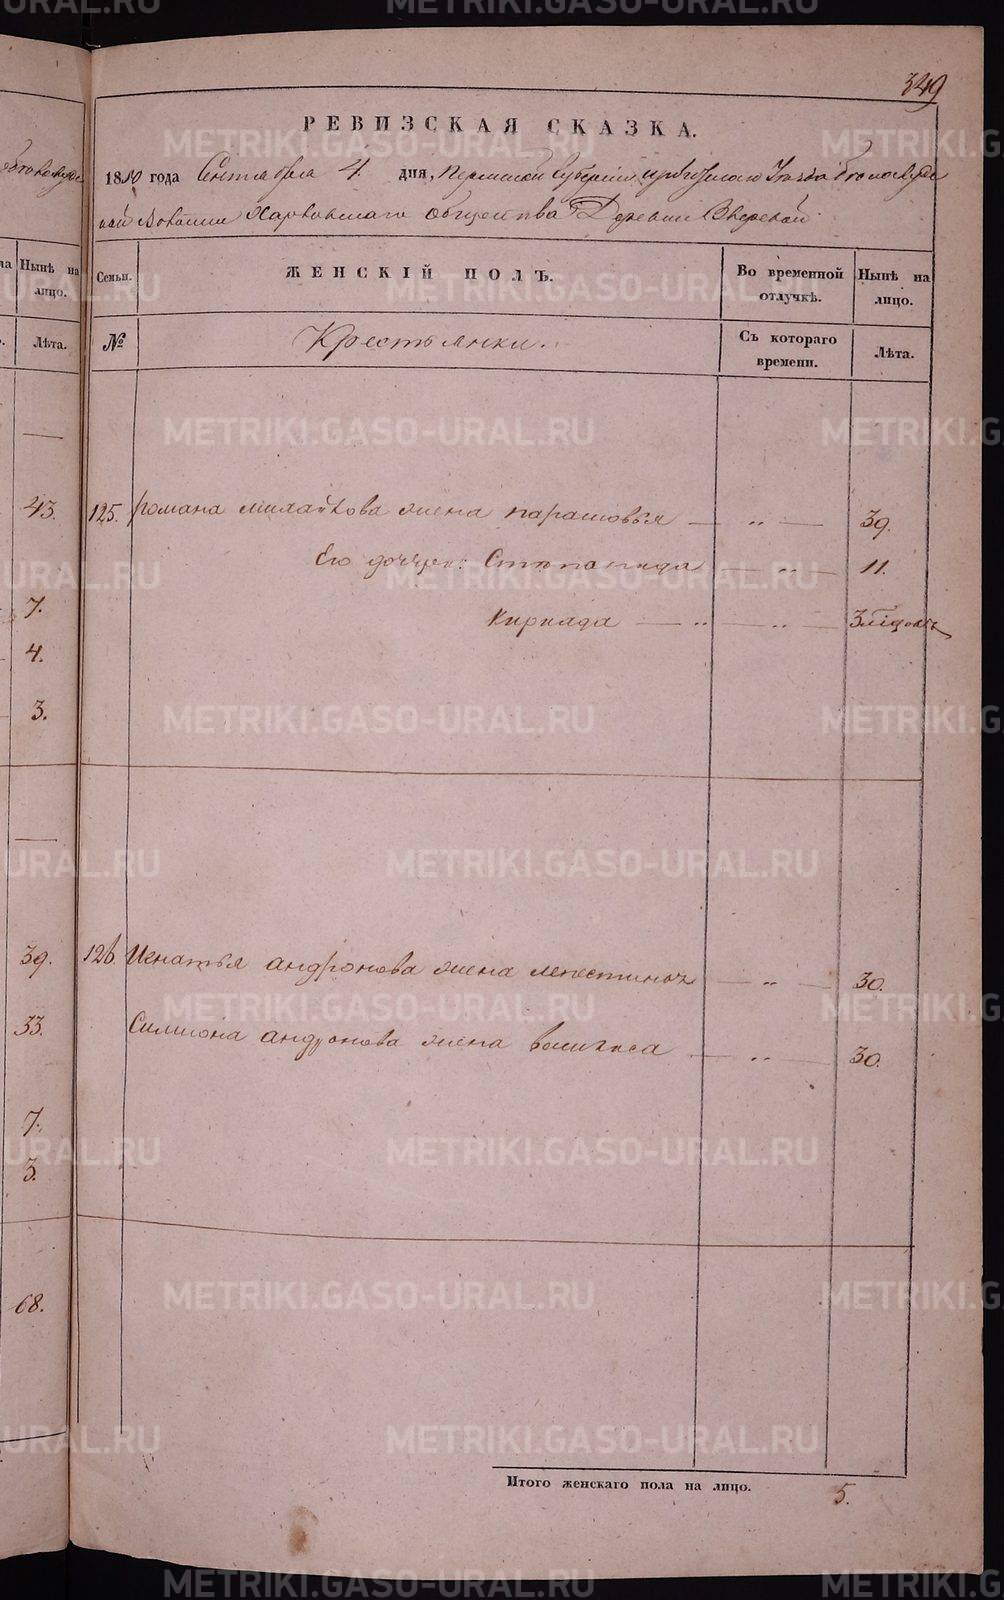 349
РЕВИЗСКАЯ СКАЗКА.
1850 года Сентября 4. дня, Пермской Губернии, Уезда
Волости Общества Деревни Зверевой
Семьи. ЖЕНСКІЙ ПОЛЪ. Во временной отлучкѣ. Нынѣ на лицо.
№ Крестьянки. Съ котораго времени. Лѣта.
Нынѣ на лицо.
Лѣта.
43.
125. романа жена парасковья — „ — 39.
Его дочери: Степанида — „ — 11.
7.
— „ — „ — 3
4.
3.
39.
126 Игнатья андронова жена — „ — 30.
33.
андронова жена — „ — 30.
7.
3.
68.
Итого женскаго пола на лицо. 5.
METRIKI.GASO-URAL.RU